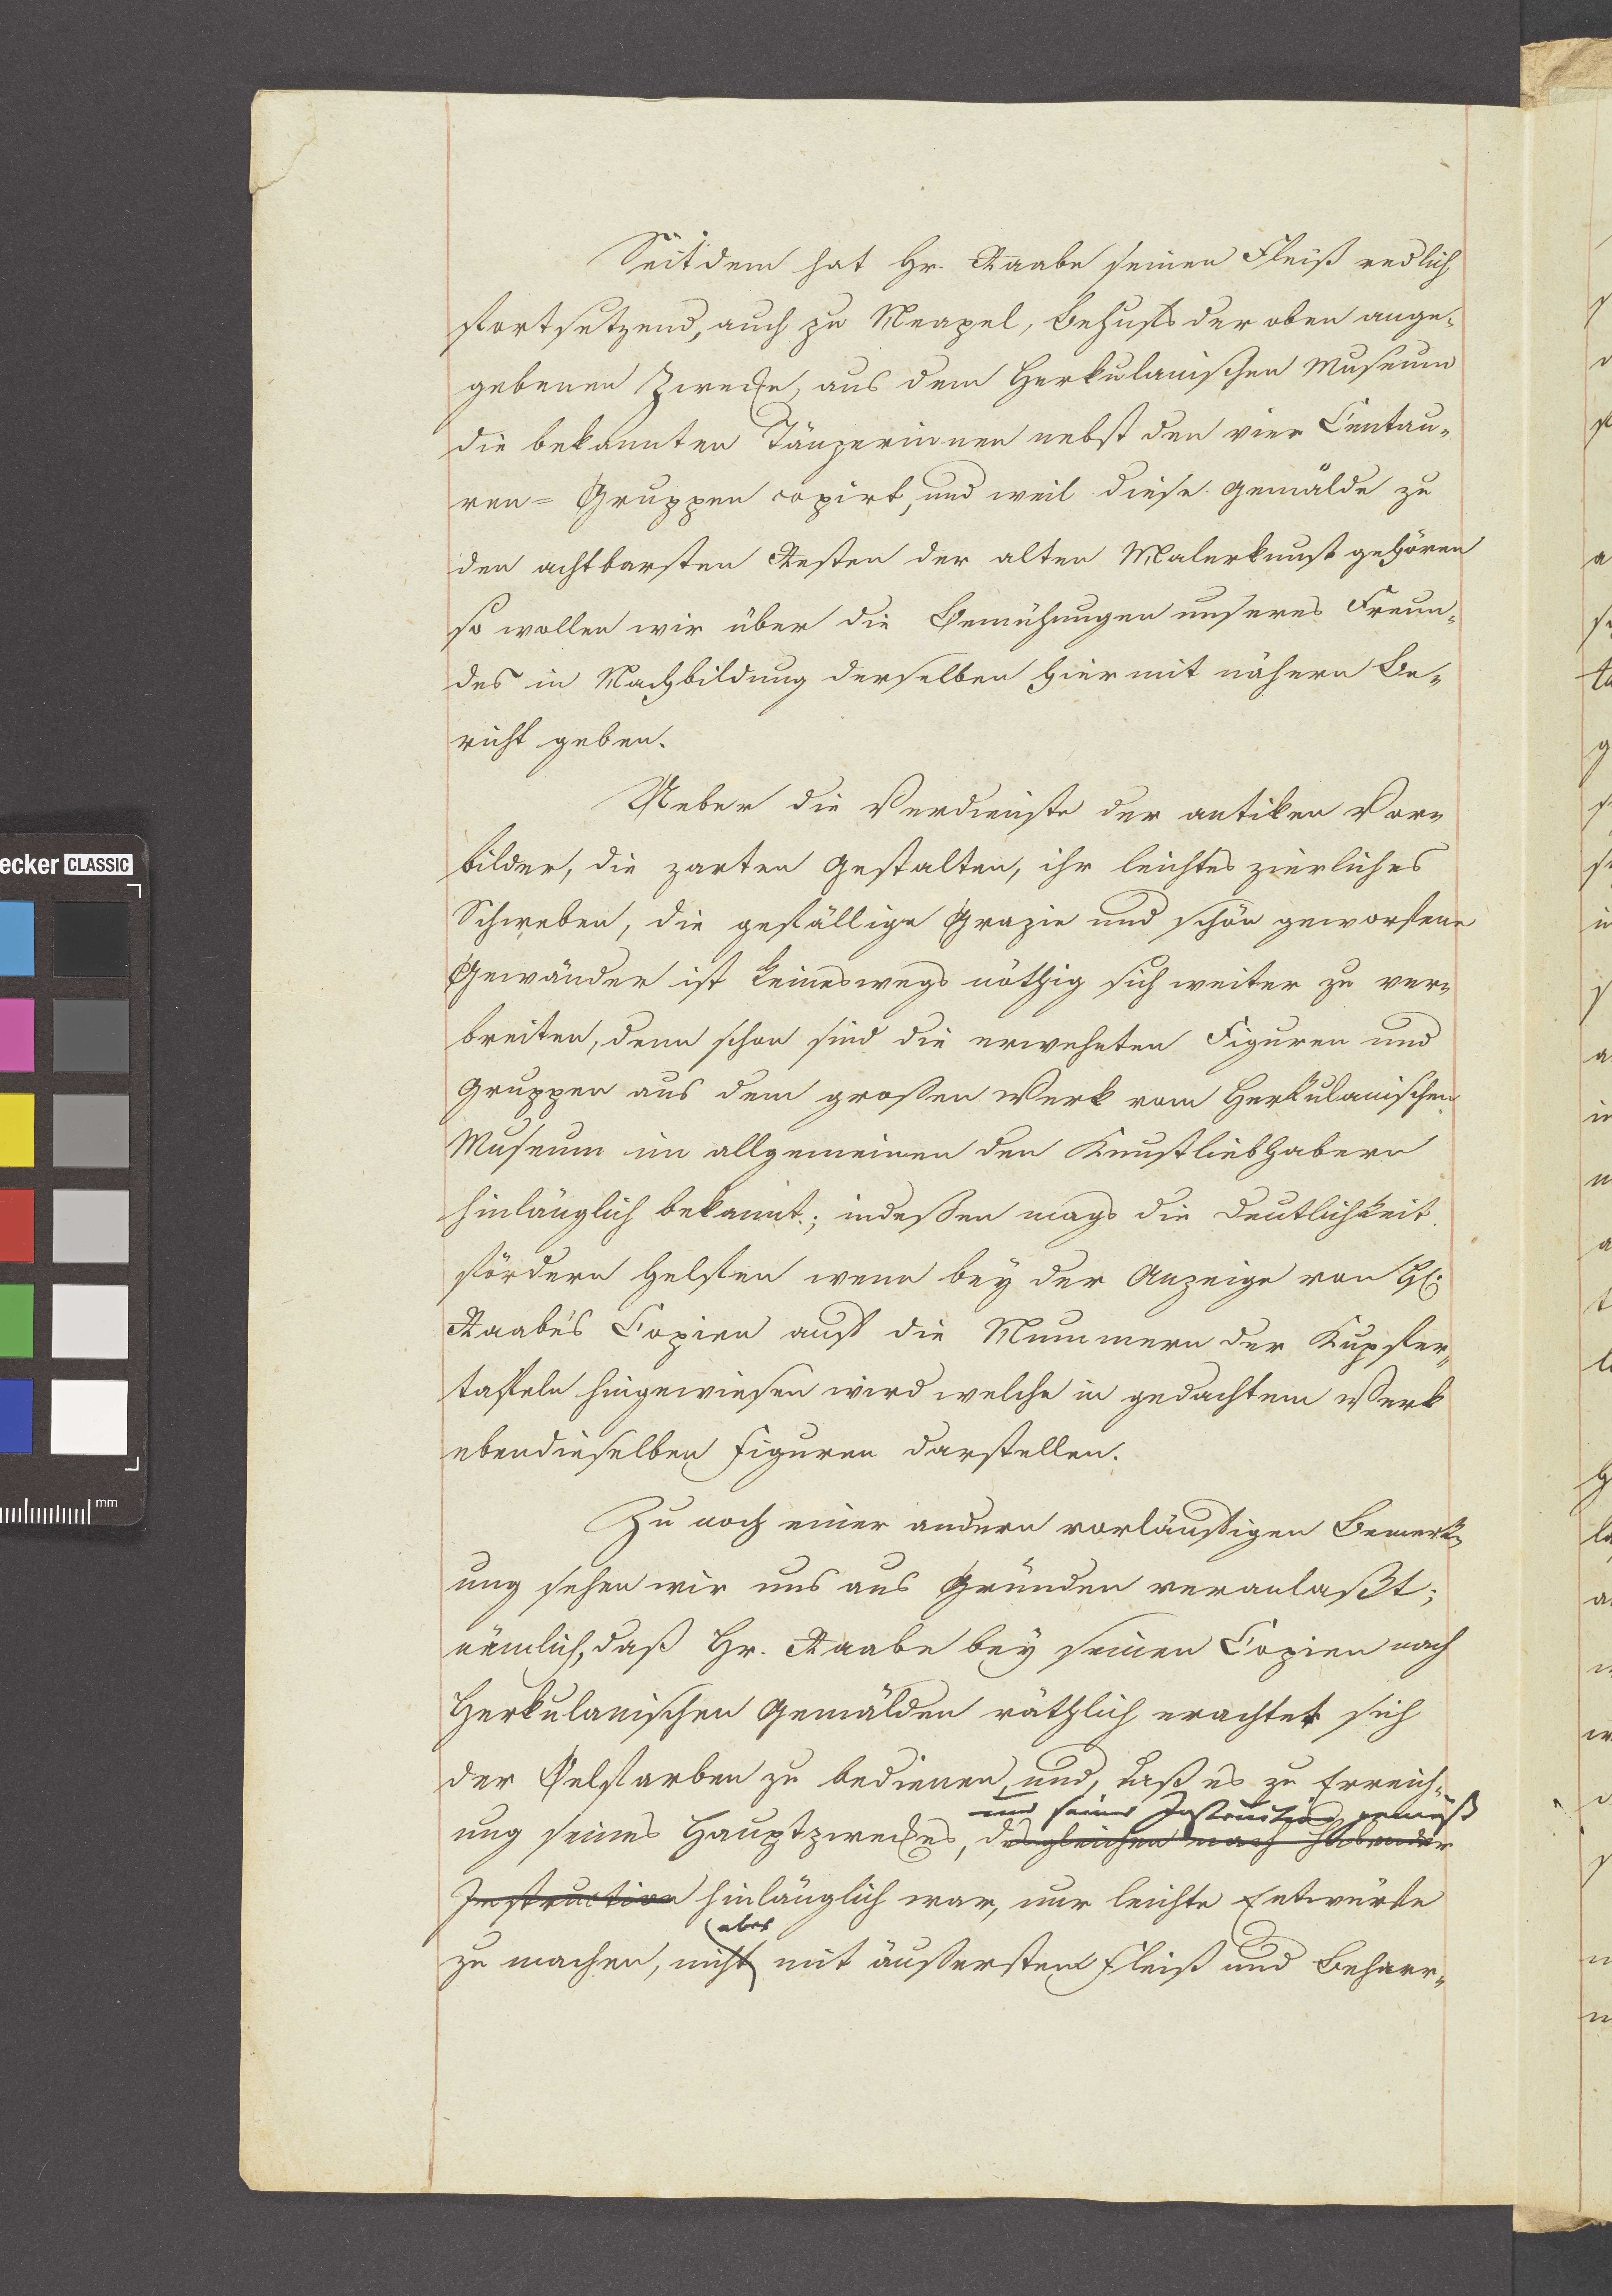 Seitdem hat Hr. Raabe seinen Fleiß redlich
fortsetzend, auch zu Neapel, Behufs der oben ange-
gebenen Zwecke, aus dem Herkulanischen Museum
die bekannten Tänzerinnen nebst den vier Centau-
ren=Gruppen copirt, und weil diese Gemälde zu
den achtbarsten Resten der alten Malerkunst gehören
so wollen wir über die Bemühungen unseres Freun-
des in Nachbildung derselben hiermit nähern Be-
richt geben.
Ueber die Verdienste der antiken Vor-
bilder, die zarten Gestalten, ihr leichtes zierliches
Schweben, die gefällige Grazie und schön geworfene
Gewänder ist keineswegs nöthig sich weiter zu ver-
breiten, denn schon sind die erwehnten Figuren und
Gruppen aus dem großen Werk vom Herkulanischen
Museum im allgemeinen den Kunstliebhabern
hinlänglich bekannt; indeßen mags die Deutlichkeit
fördern helfen wenn bey der Anzeige von H:
Raabe's Copien auf die Nummern der Kupfer-
tafeln hingewiesen wird welche in gedachtem Werk
ebendieselben Figuren darstellen.
Zu noch einer andern vorläufigen Bemerk-
ung sehen wir uns aus Gründen veranlaßt;
nämlich, daß Hr. Raabe bey seinen Copien nach
Herkulanischen Gemälden räthlich erachtet sich
der Oelfarben zu bedienen, und, daß es zu Erreich-
und seiner Instruction gemäß
ung seines Hauptzweckes, desgleichen nach habender
Instruction hinlänglich war, nur leichte Entwürfe
aber
zu machen, nicht mit äußerstem Fleiß und Beharr-
ecker CLASSIC
mm